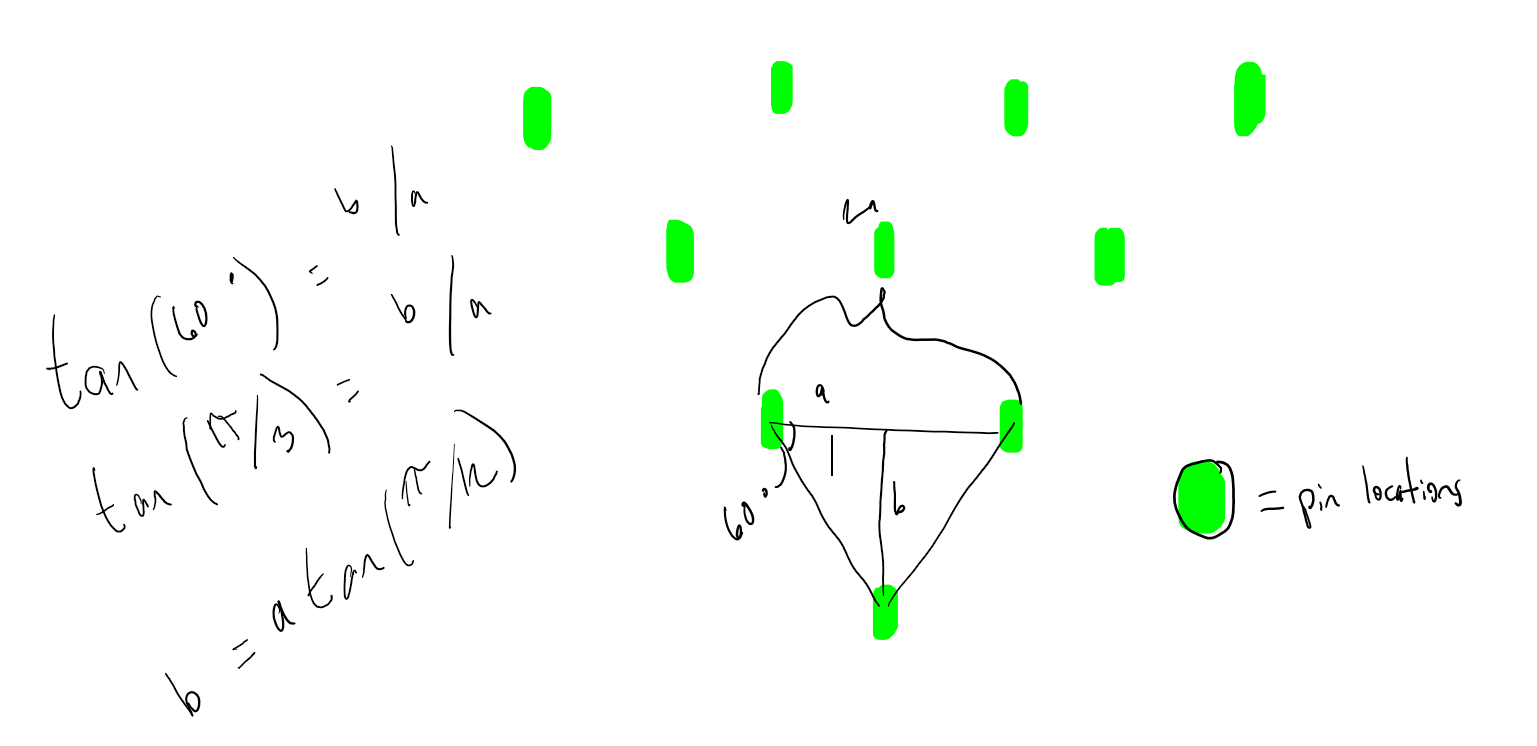 tan(60°) = b/a
tan(π/3) = b/a
b = a tan(π/12)
a
b
60°
= pin locations